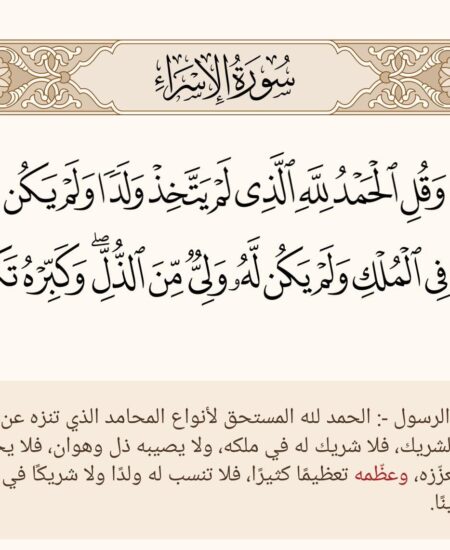 سُورَةُ الإِسۡرَاءِ
وَقُلِ ٱلۡحَمۡدُ لِلَّهِ ٱلَّذِى لَمۡ يَتَّخِذۡ وَلَدٗا وَلَمۡ يَكُن
فِى ٱلۡمُلۡكِ وَلَمۡ يَكُن لَّهُۥ وَلِيّٞ مِّنَ ٱلذُّلِّۖ وَكَبِّرۡهُ
الرسول -: الحمد لله المستحق لأنواع المحامد الذي تنزه عن
فلا شريك له في ملكه، ولا يصيبه ذل وهوان، فلا
وعظّمه تعظيمًا كثيرًا، فلا تنسب له ولدًا ولا شريكًا في